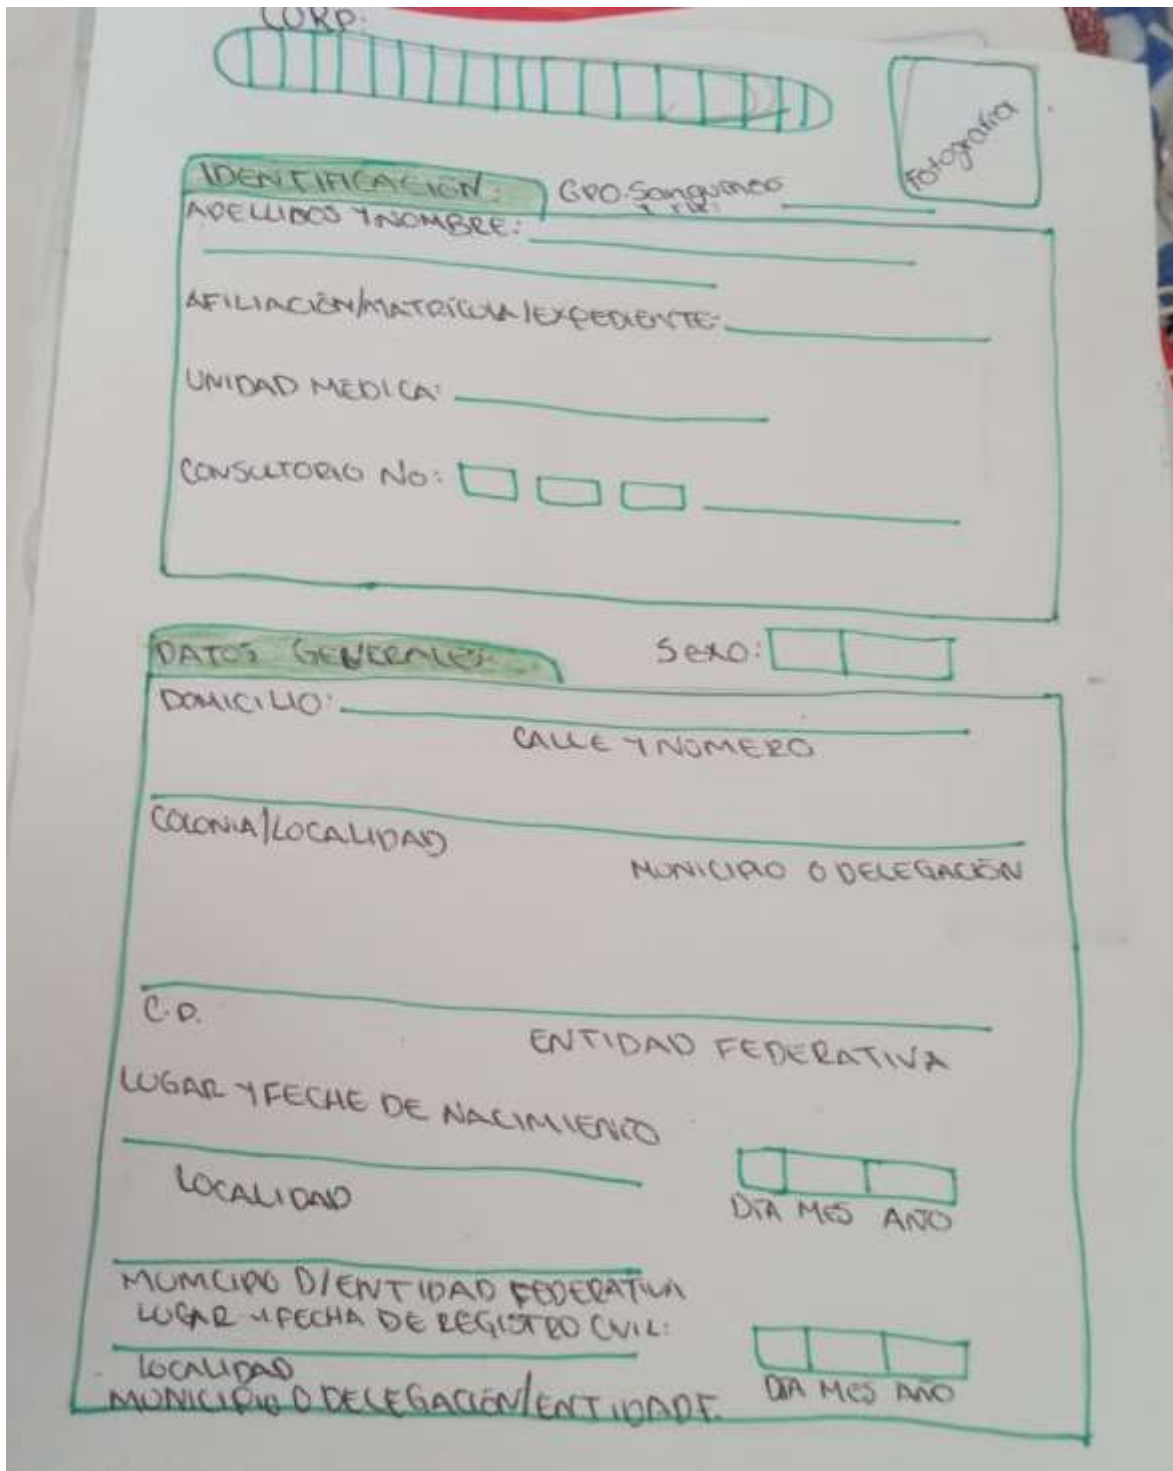 CURP.
Fotografía
IDENTIFICACIÓN:
GPO. Sanguineo
Y RH:
APELLIDOS Y NOMBRE:
AFILIACIÓN/MATRÍCULA/EXPEDIENTE:
UNIDAD MEDICA:
CONSULTORIO No:
DATOS GENERALES
Sexo:
DOMICILIO:
CALLE Y NÚMERO
COLONIA/LOCALIDAD
MUNICIPIO O DELEGACIÓN
C.P.
ENTIDAD FEDERATIVA
LUGAR Y FECHE DE NACIMIENTO
LOCALIDAD
DÍA MES AÑO
MUNICIPIO D/ENTIDAD FEDERATIVA
LUGAR Y FECHA DE REGISTRO CIVIL:
LOCALIDAD
DÍA MES AÑO
MUNICIPIO O DELEGACIÓN/ENTIDAD F.